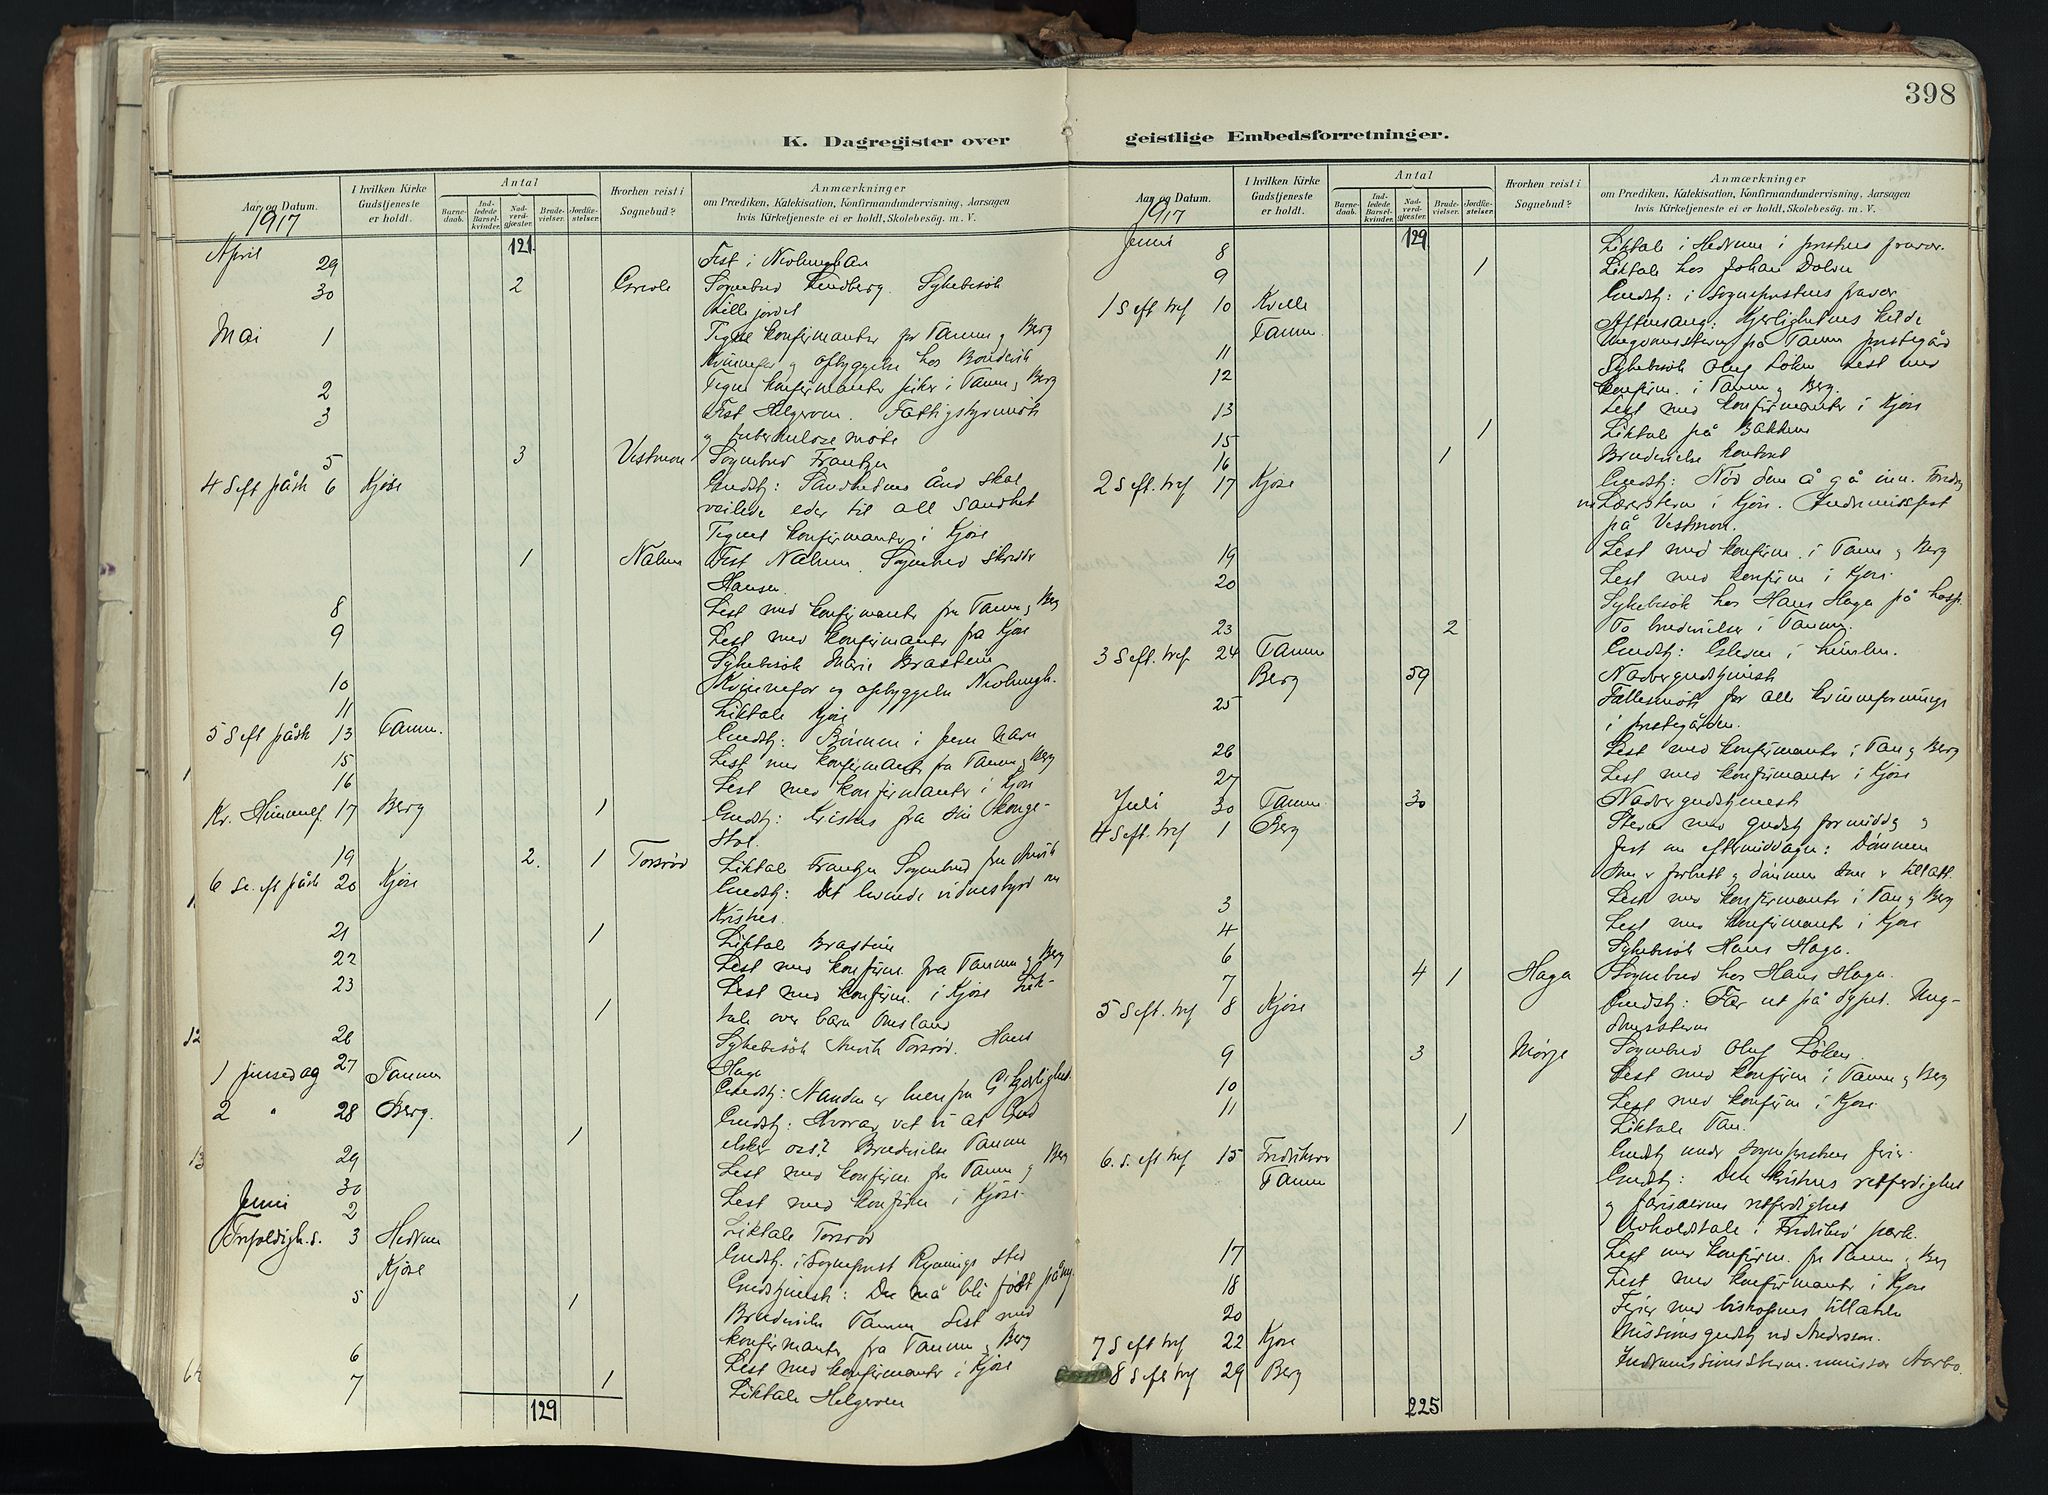 398
K. Dagregister over geistlige Embedsforretninger.
Aar og Datum.
I hvilken Kirke Gudstjeneste er holdt.
Antal
Barnedaab.
Indledede Barselkvinder.
Nadverdgjæster.
Brudevielser.
Jordfæstelser.
Hvorhen reist i Sognebud?
Anmærkninger
om Prædiken, Katekisation, Konfirmandundervisning, Aarsagen
hvis Kirketjeneste ei er holdt, Skolebesøg. m. V.
1917
April 121
29 Fest i
30 2 Sognebud Lindberg. Sykebesök
Lillejordet
Mai 1 Tegnet konfirmanter for Tanum og Berg
Kvinnefor og opbyggelse hos
2 Tegnet konfirmanter i Tanum og Berg
3 Fest Helgeroen. Fattigstyrmöte
og tuberkulosemöte
5 3 Sognebud Frantzen
4 S eft påsk 6 Kjose Gudstj: Sandhedens Ånd skal
veilede eder til all sandhet
Tegnet konfirmanter i Kjose
1 Nalum Fest Nalum. Sognebud
Hansen.
8 Lest med konfirmanter fra Tanum og Berg
9 Lest med konfirmanter fra Kjose
Sykebesök Marie
10 Kvinnefor og opbyggelse
11 Liktale Kjose
5 S eft påsk 13 Tanum. Gudstj: Bönnen i Jesu navn
15 Lest med konfirmanter fra Tanum og Berg
16 Lest med konfirmanter i Kjose
Kr. Himmelf 17 Berg 1 Gudstj: Kristus fra sin konge-
stol.
19 2. 1 Torsrød Liktale Frantzen Sognebud
6 S. eft påsk 20 Kjose Gudstj: Det levende vidnesbyrd om
Kristus.
21 1 Liktale
22 Lest med konfirm. fra Tanum og Berg
23 1 Lest med konfirm. i Kjose Lik-
tale over barn Omsland
26 Sykebesök Torsrød. Hans
Haga
1 pinsedag 27 Tanum Gudstj: Aanden er
2 " 28 Berg. 1 Gudstj: Hvorav vet vi at Gud
elsker oss? Brudevielse Tanum
29 Lest med konfirm fra Tanum og Berg
30 Lest med konfirm i Kjose.
Juni 2 Liktale Torsrød
Trefoldigh. s. 3 Hedrum Gudstj. i Sogneprest sted
Kjose Gudstjeneste: Du må bli född på ny.
5 1 Brudevielse Tanum Lest med
konfirmanter fra Tanum og Berg
6 Lest med konfirmanter i Kjose
7 1 Liktale Helgeroen
129
1917
Juni 129
8 Liktale i Hedrum i prestens fravær.
9 1 Liktale hos Johan Dolven
1 S eft tref 10 Kvelle Gudstj: i Sogneprestens fravær
Tanum. Aftensang: Kjerlighetens kilde
11 Ungdomsstevne på Tanum prestegård
12 Sykebesök Oluf Löken Lest med
konfirm. i Tanum og Berg.
13 Lest med konfirmanter i Kjose
15 1 Liktale på Bakken
16 1 Brudevielse kontoret
2 S eft. tref 17 Kjose Gudstj: Nöd dem å gå inn.
i Kjose.
på Vestmoen.
19 Lest med konfirm. i Tanum og Berg
20 Lest med konfirm i Kjose.
Sykebesök hos Hans Haga på hosp.
23 2 To brudevielser i Tanum.
3 S eft. tref. 24 Tanum Gudstj:
Berg 59 Nadvergudstjeneste
25 Fællesmöte for alle kvinneforeninger
i prestegården.
26 Lest med konfirmanter i Tan og Berg
27 Lest med konfirmanter i Kjose
Juli 30 Tanum 30 Nadvergudstjeneste
4 S eft. tref 1 Berg Stevne med gudstj formiddag og
fest om eftermiddagen: Dommen
som er forbudt og dommen som er tillatt.
3 Lest med konfirmanter i Tan og Berg
4 Lest med konfirmanter i Kjose
6 Sykebesök Hans Haga.
7 4 1 Haga Sognebud hos Hans Haga.
5 S eft. tref 8 Kjose Gudstj: Far ut på dypet. Ung-
domsstevne
9 3 Mørje Sognebud Oluf Löken.
10 Lest med konfirm i Tanum og Berg
11 Lest med konfirm i Kjose
1 Liktale Tan.
6. s. eft tref 15 Gudstj under sogneprestens ferie.
Tanum Gudstj: Den kristnes retferdighet
og fariseernes retferdighet
Avholdstale i park.
17 Lest med konfirm. fra Tanum og Berg
18 Lest med konfirmanter i Kjose
20 Ferier med biskopens tillatelse
7 S eft tref 22 Kjose Missionsgudstj ved Andersson.
8 S eft tref 29 Berg Indremissionsstevne.
225